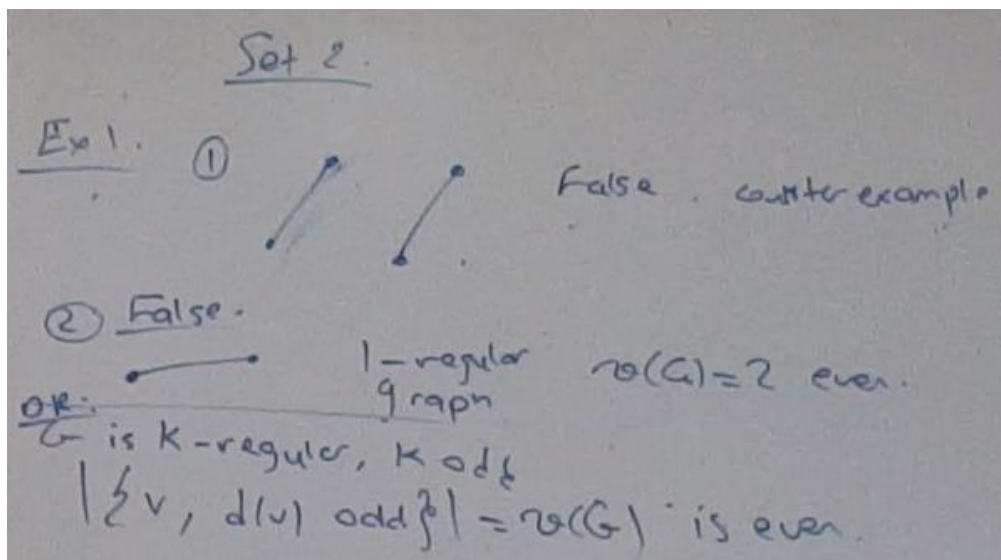 Set 2.
Ex 1. ① False. counter example
② False.
1-regular graph v(G)=2 even.
OR:
G is K-regular, K odd
|{v, d(v) odd}| = v(G) is even.